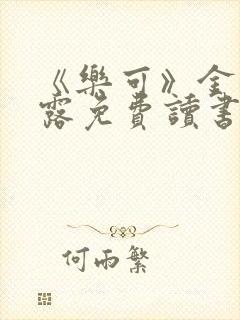 《樂可》金
露免費讀書
何雨繁